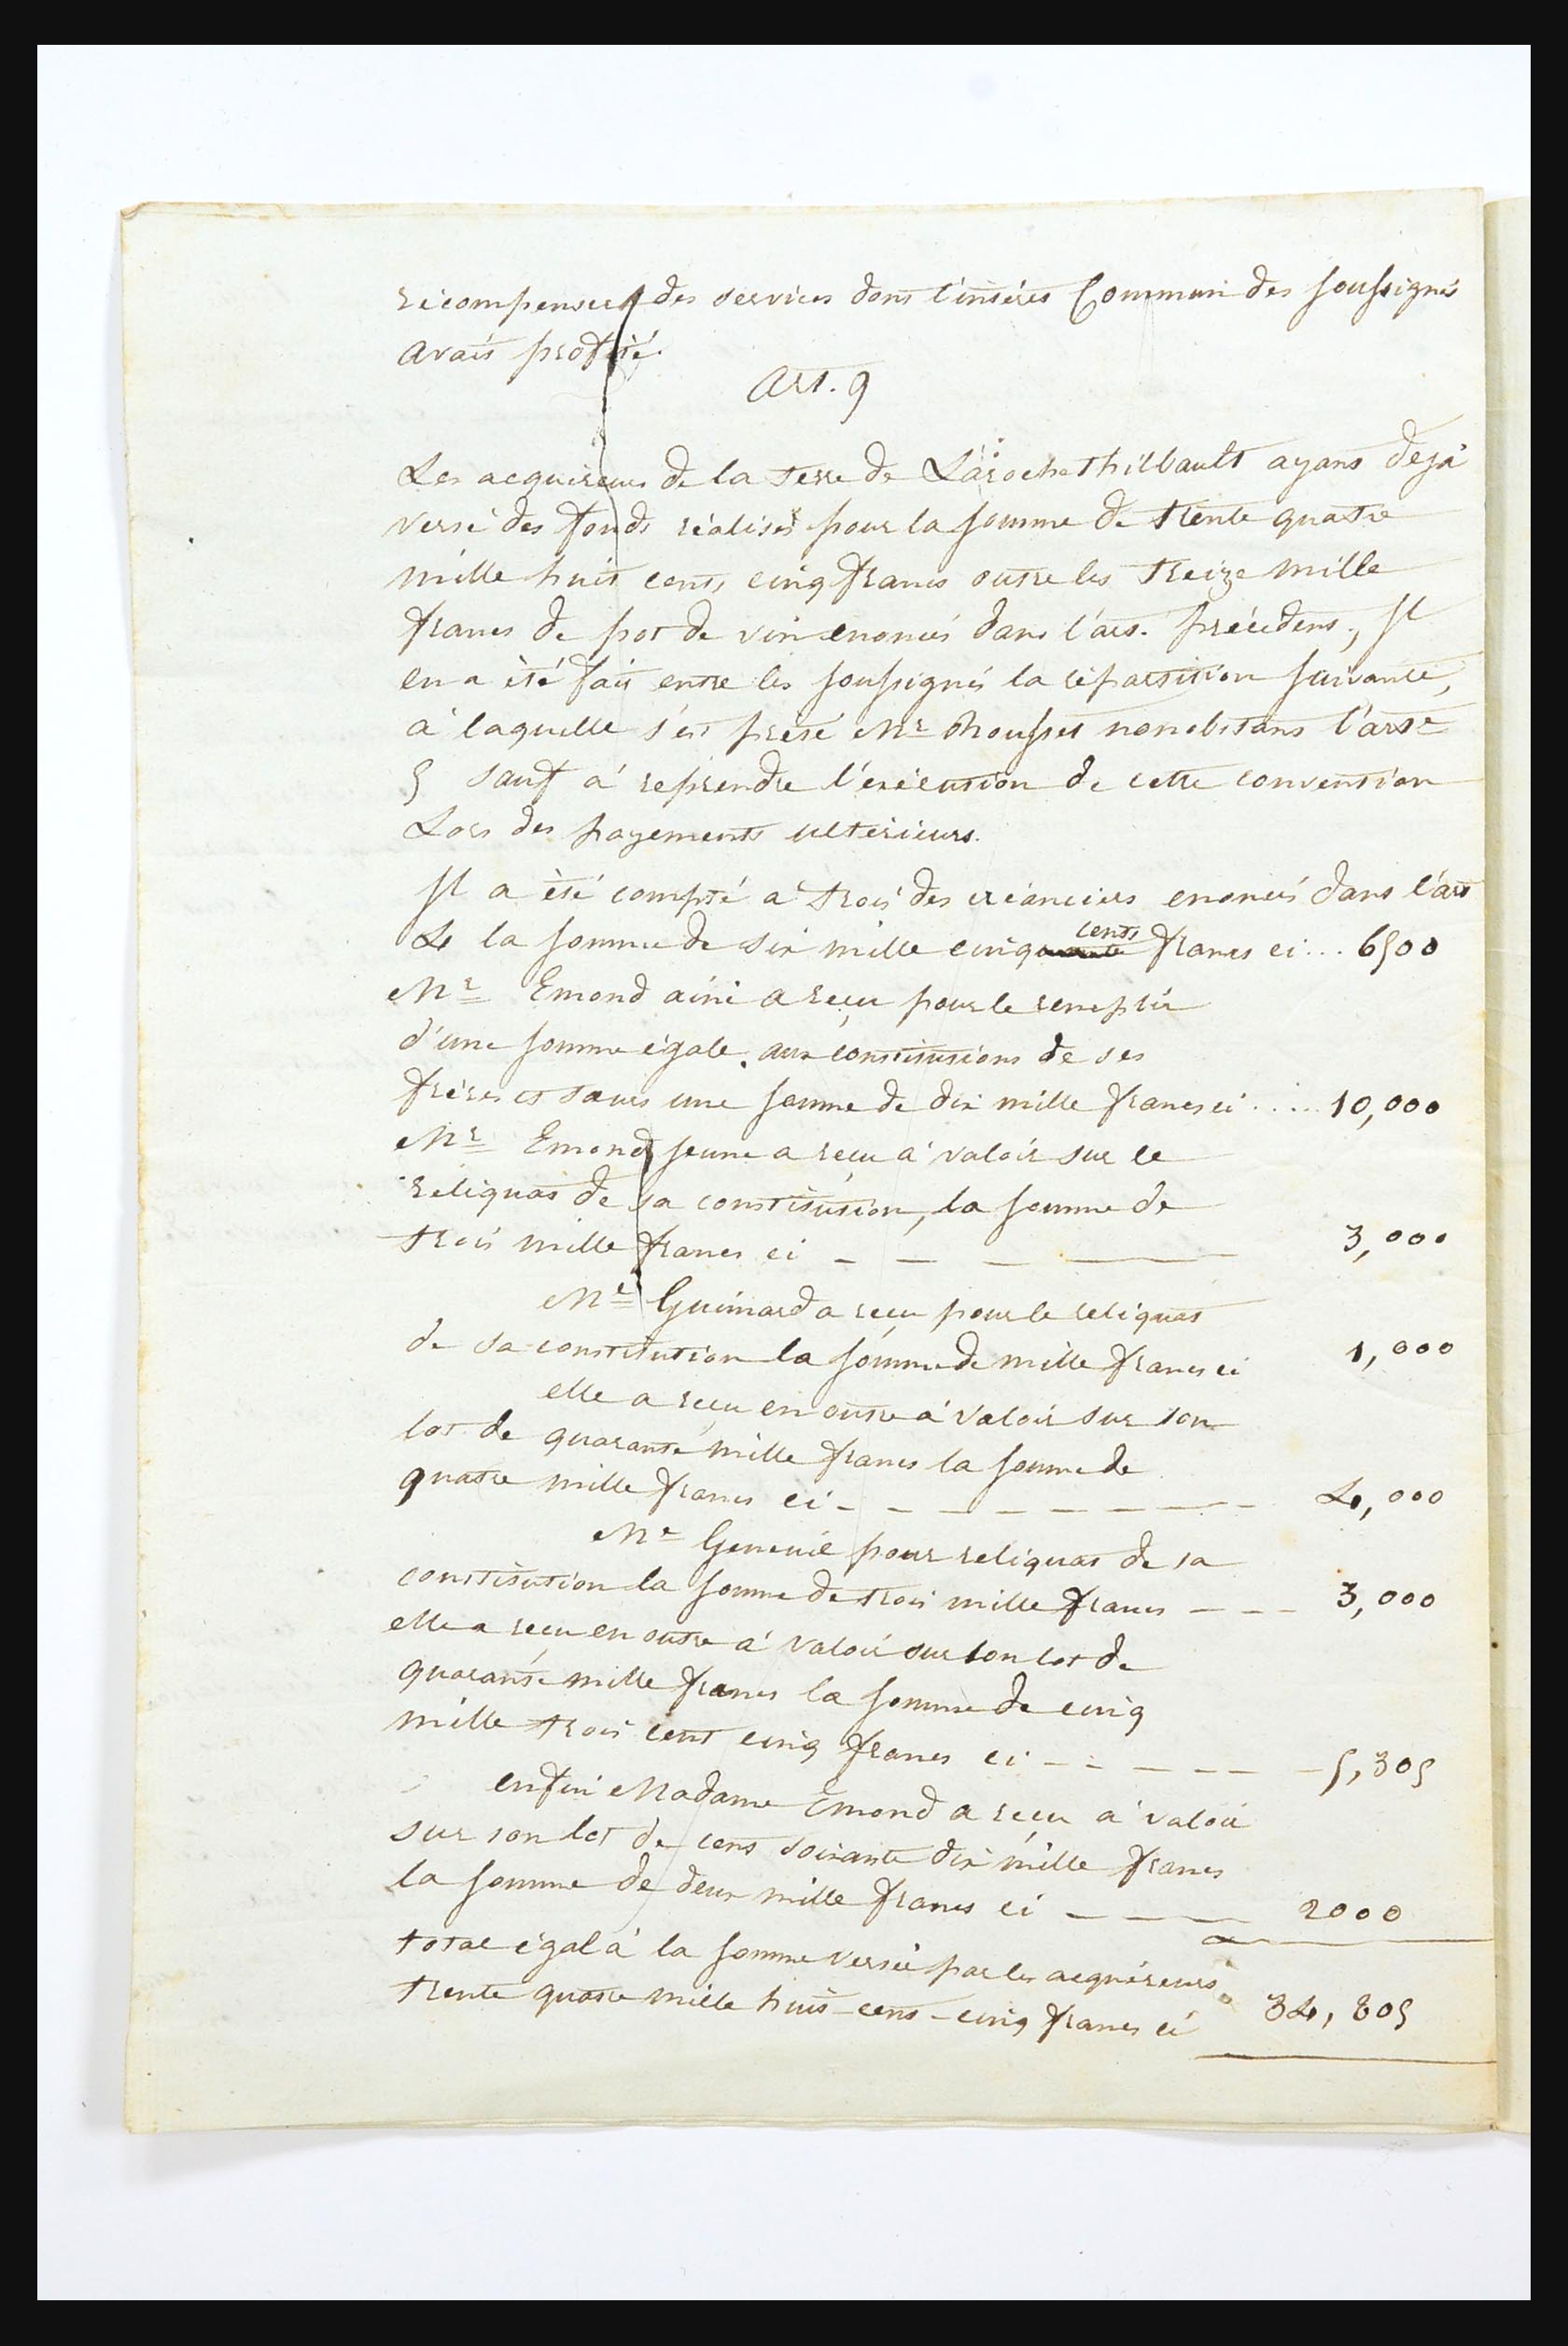 récompenser des services dont l'intérêt Commun des soussignés
avait profité.
Art. 9
Les acquéreurs de la terre de Larochethilbault ayant déjà
versé des fonds réalisés pour la somme de trente quatre
mille huit cents cinq francs outre les treize mille
francs de pot de vin enoncés dans l'art. précédent, Il
en a été fait entre les soussignés la répartition suivante,
à laquelle s'est prêté Mr nonobstant l'arte
5 sauf à reprendre l'exécution de cette convention
Lors des payements ulterieurs.
Il a été compté a trois des créanciers enoncés dans l'art
4 la somme de six mille cinq cents francs ci... 6500
Mr Emond ainé a reçu pour le remplir
d'une somme égale aux constitutions de ses
frères et sœurs une somme de dix mille francs ci ..... 10,000
Mr Emond jeune a reçu à valoir sur le
reliquat de sa constitution, la somme de
trois mille francs ci — — — — 3,000
Me Guimard a reçu pour le reliquat
de sa constitution la somme de mille francs ci 1,000
elle a reçu en outre à valoir sur son
lot de quarante mille francs la somme de
quatre mille francs ci - - - - - - - - 4,000
Me pour reliquat de sa
constitution la somme de trois mille francs - - - 3,000
elle a reçu en outre à valoir sur son lot de
quarante mille francs la somme de cinq
mille trois cent cinq francs ci - - - - - - 5,305
enfin Madame Emond a reçu à valoir
sur son lot de cent soixante dix mille francs
la somme de deux mille francs ci — — — 2000
total égal à la somme versée par les acquéreurs
trente quatre mille huit-cent-cinq francs ci 34,805